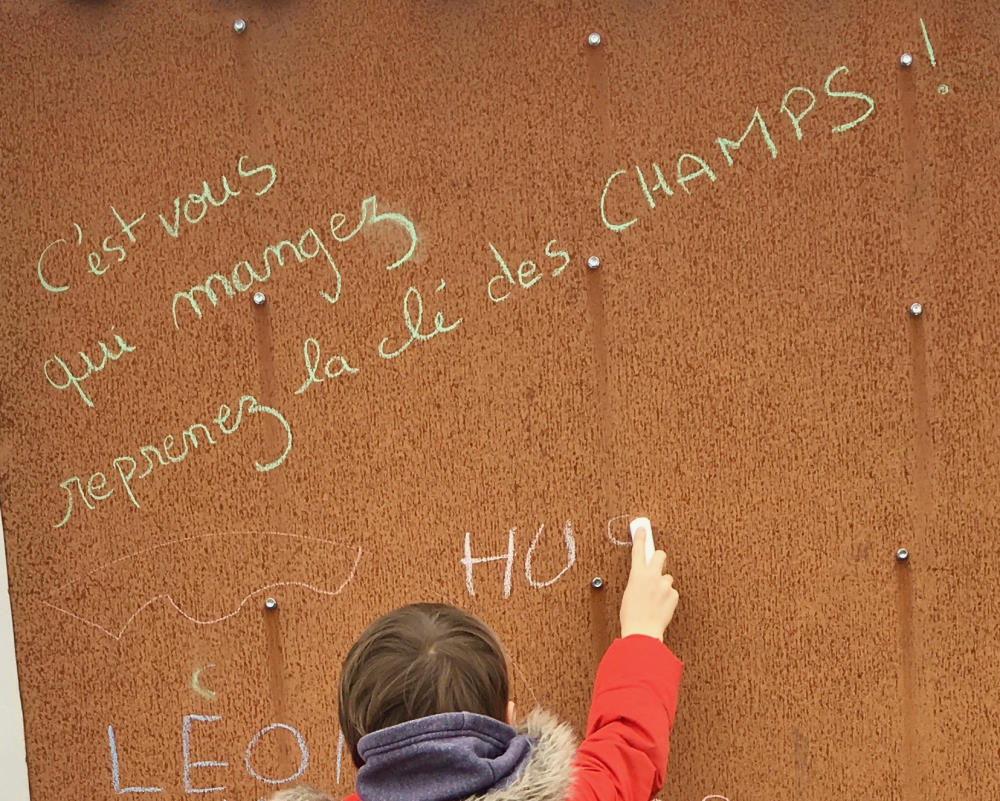 C'est vous
qui mangez
reprenez la clé des CHAMPS !
HU
LÉO